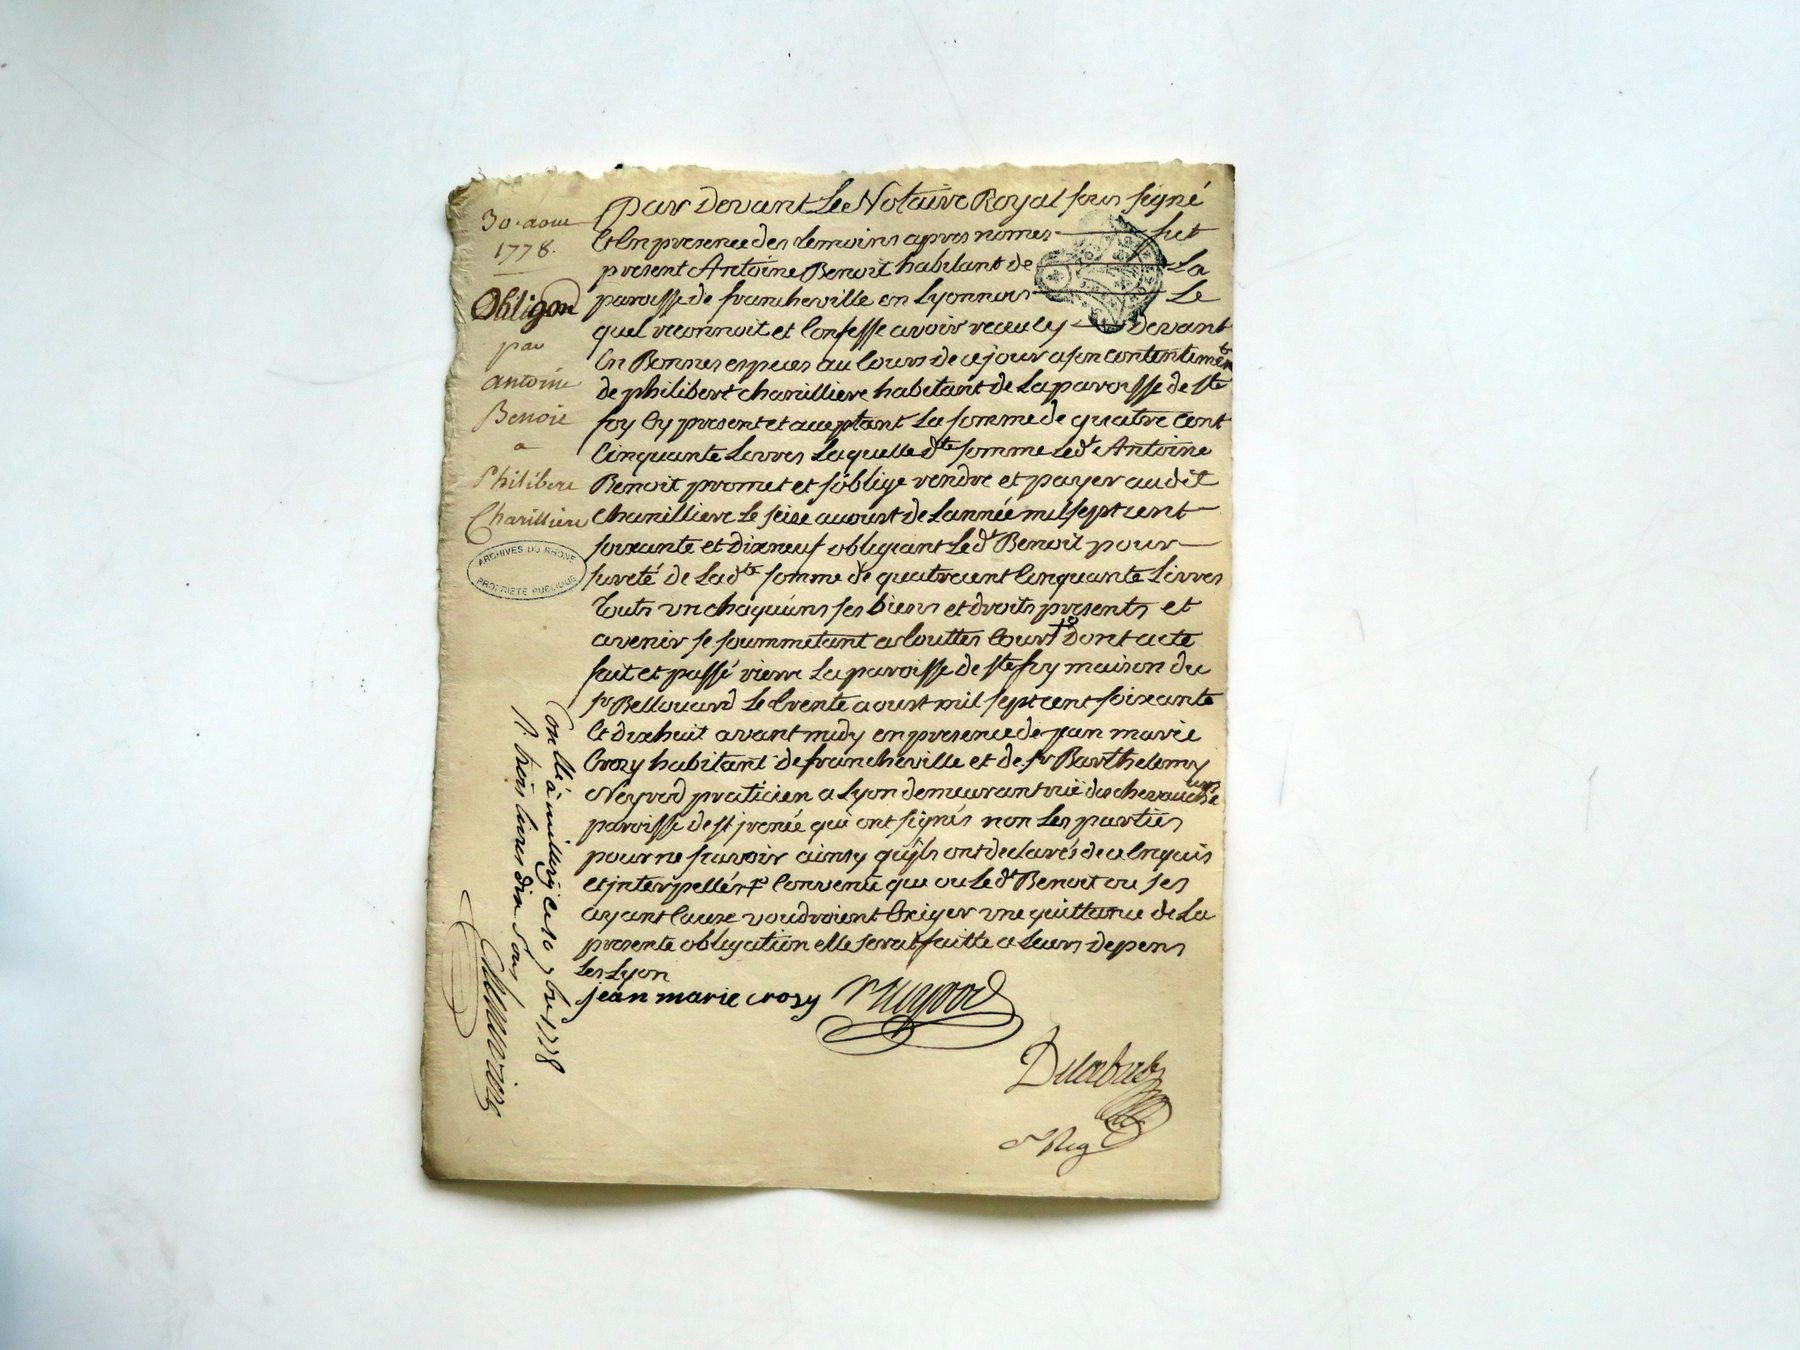 30. aout
1778.
Obligaon
par
antoine
Benoit
a
Philibert
Charillieri
ARCHIVES DU RHONE
PROPRIETE PUBLIQUE
par devant Le Notaire Royal sous signé
Et En presence des temoins apres nomes fut
present Antoine Benoit habitant de La
paroisse de francheville en Lyonnois Le
quel reconnoit et Confesse avoir receu cy devant
En Bonnes especes au Cours de ce jour a son contentement
de philibert charillierc habitant de La paroisse de ste
foy Cy present et acceptant La somme de quatre Cent
Cinquante Livres Laquelle dte somme Led Antoine
Benoit promet et s'oblige rendre et payer audit
Charillierc Le seise aoust de L'année mil sept cent
soixante et dixneuf obligeant Led Benoit pour
sureté de Ladte somme de quatrecent Cinquante Livres
touts un chaquuns ses biens et droits presents et
avenir se soummetant a touttes Cours dont acte
fait et passé rierre La paroisse de ste foy maison du
sr Bellouard Le trente aoust mil sept cent soixante
Et dixhuit avant midy en presence de jean marie
Crozy habitant de francheville et de sr Barthelemy
Neyrod praticien a Lyon demeurant rue des chevaucheurs
paroisse de st jrenée qui ont signés non Les parties
pour ne scavoir ainsy qu'jls ont declarés de ce Enquis
et jnterpellés Convenu que ou Led Benoit ou ses
ayant Cause voudroient Exiger une quittance de La
presente obligation elle serat faitte a Leurs depens
Les Lyon
jean marie crozy Neyrod
Con llé à millery ce 10 7bre 1778
R. trois livres dix sous